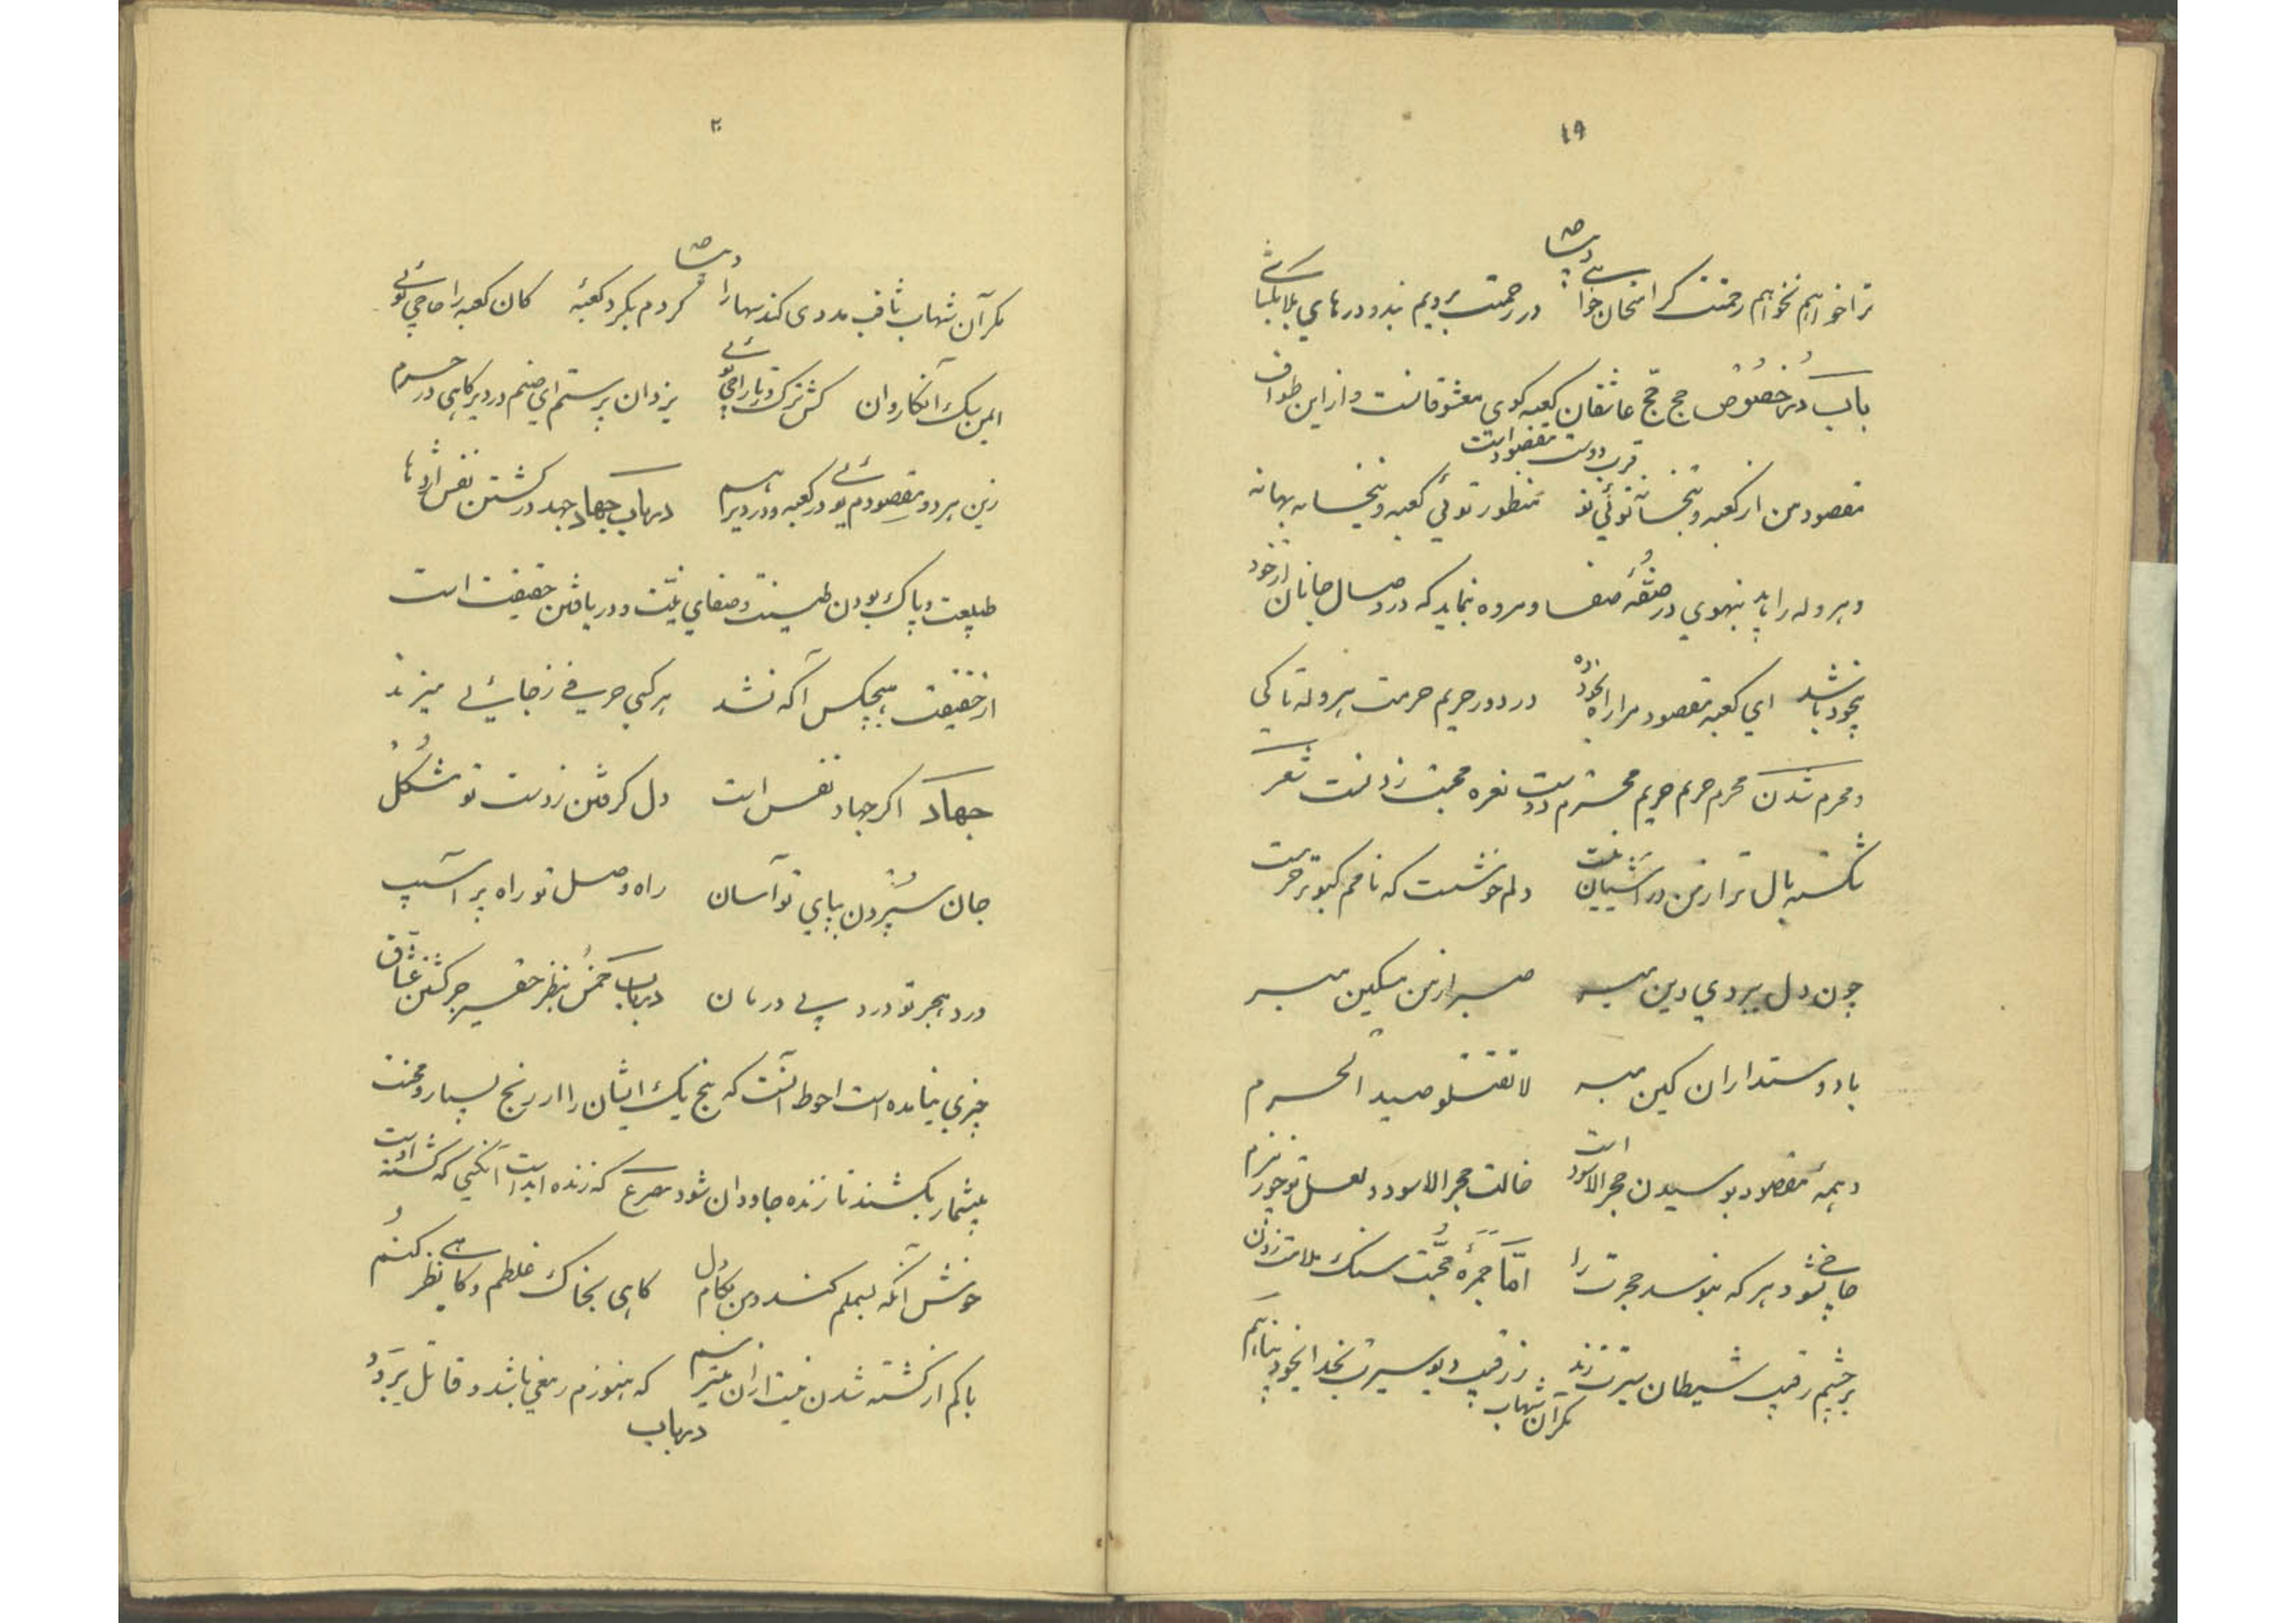 ١٩
ترا خواهیم نخواهیم رحمتت گر امتحان خواهی در رحمت برویم بند و درهای بلا بگشای
باب در خصوص حج حج عاشقان کعبه کوی معشوقانست و از این طواف
قرب دوست مقصود است
مقصود من از کعبه و بتخانه توئی تو منظور توئی کعبه و بتخانه بهانه
و هروله را باید بنهوی در صفه صفا و مروه نماید که در وصال جانان از خود
بیخود باشد ای کعبه مقصود مرا راه بخود ده در دور حریم حرمت هروله تا کی
و محرم شدن محرم حریم حریم محترم دوست نعره محبت زدنست شعر
شکسته بال تر از من در آشیان تو نیست دلم خوشست که نامم کبوتر حرمست
چون دل ببردی دین مبر صبر از من مسکین مبر
با دوستداران کین مبر لا تقتلو صید الحرم
و همه مقصود بوسیدن حجر الاسود است خالت حجر الاسود و لعل تو چو زمزم
حاجی شود هر که ببوسد حجرت را اما جمره محبت سنک ملامت زدن
بر چشم رقیب شیطان سیرت زند ز رقیب دیو سیرت بخدا بخود پناهم
مگر آن شهاب
٢٠
مگر آن شهاب ثاقب مددی کند سها را در صفا گردم بگرد کعبه کان کعبه را حاجی توئی
زین هر دو مقصودم توئی در کعبه و در دیر هم در باب جهاد جهد در کشتن نفس اژدها
طبیعت و پاک بودن طینت و صفای نیت و دریافتن حقیقت است
از حقیقت هیچکس آگه نشد هر کسی حرفی ز جائی میزند
جهاد اگر جهاد نفس است دل گرفتن ز دست تو مشکل
جان سپردن بپای تو آسان راه وصل تو راه پر آسیب
درد هجر تو درد بی درمان در باب خمس بنظر حقیر جز کشتن عشاق
چیزی نیامده است احوط آنست که پنج یک ایشان را از رنج بسیار و محنت
بیشمار بکشند تا زنده جاودان شود مصرع که زنده ابد است آنکسی که کشته اوست
خوش آنکه بسملم کند و من بکام دل گاهی بخاک غلطم و گاهی نظر کنم
باکم از کشته شدن نیست از آن میترسم که هنوزم رمقی باشد و قاتل برود
در باب